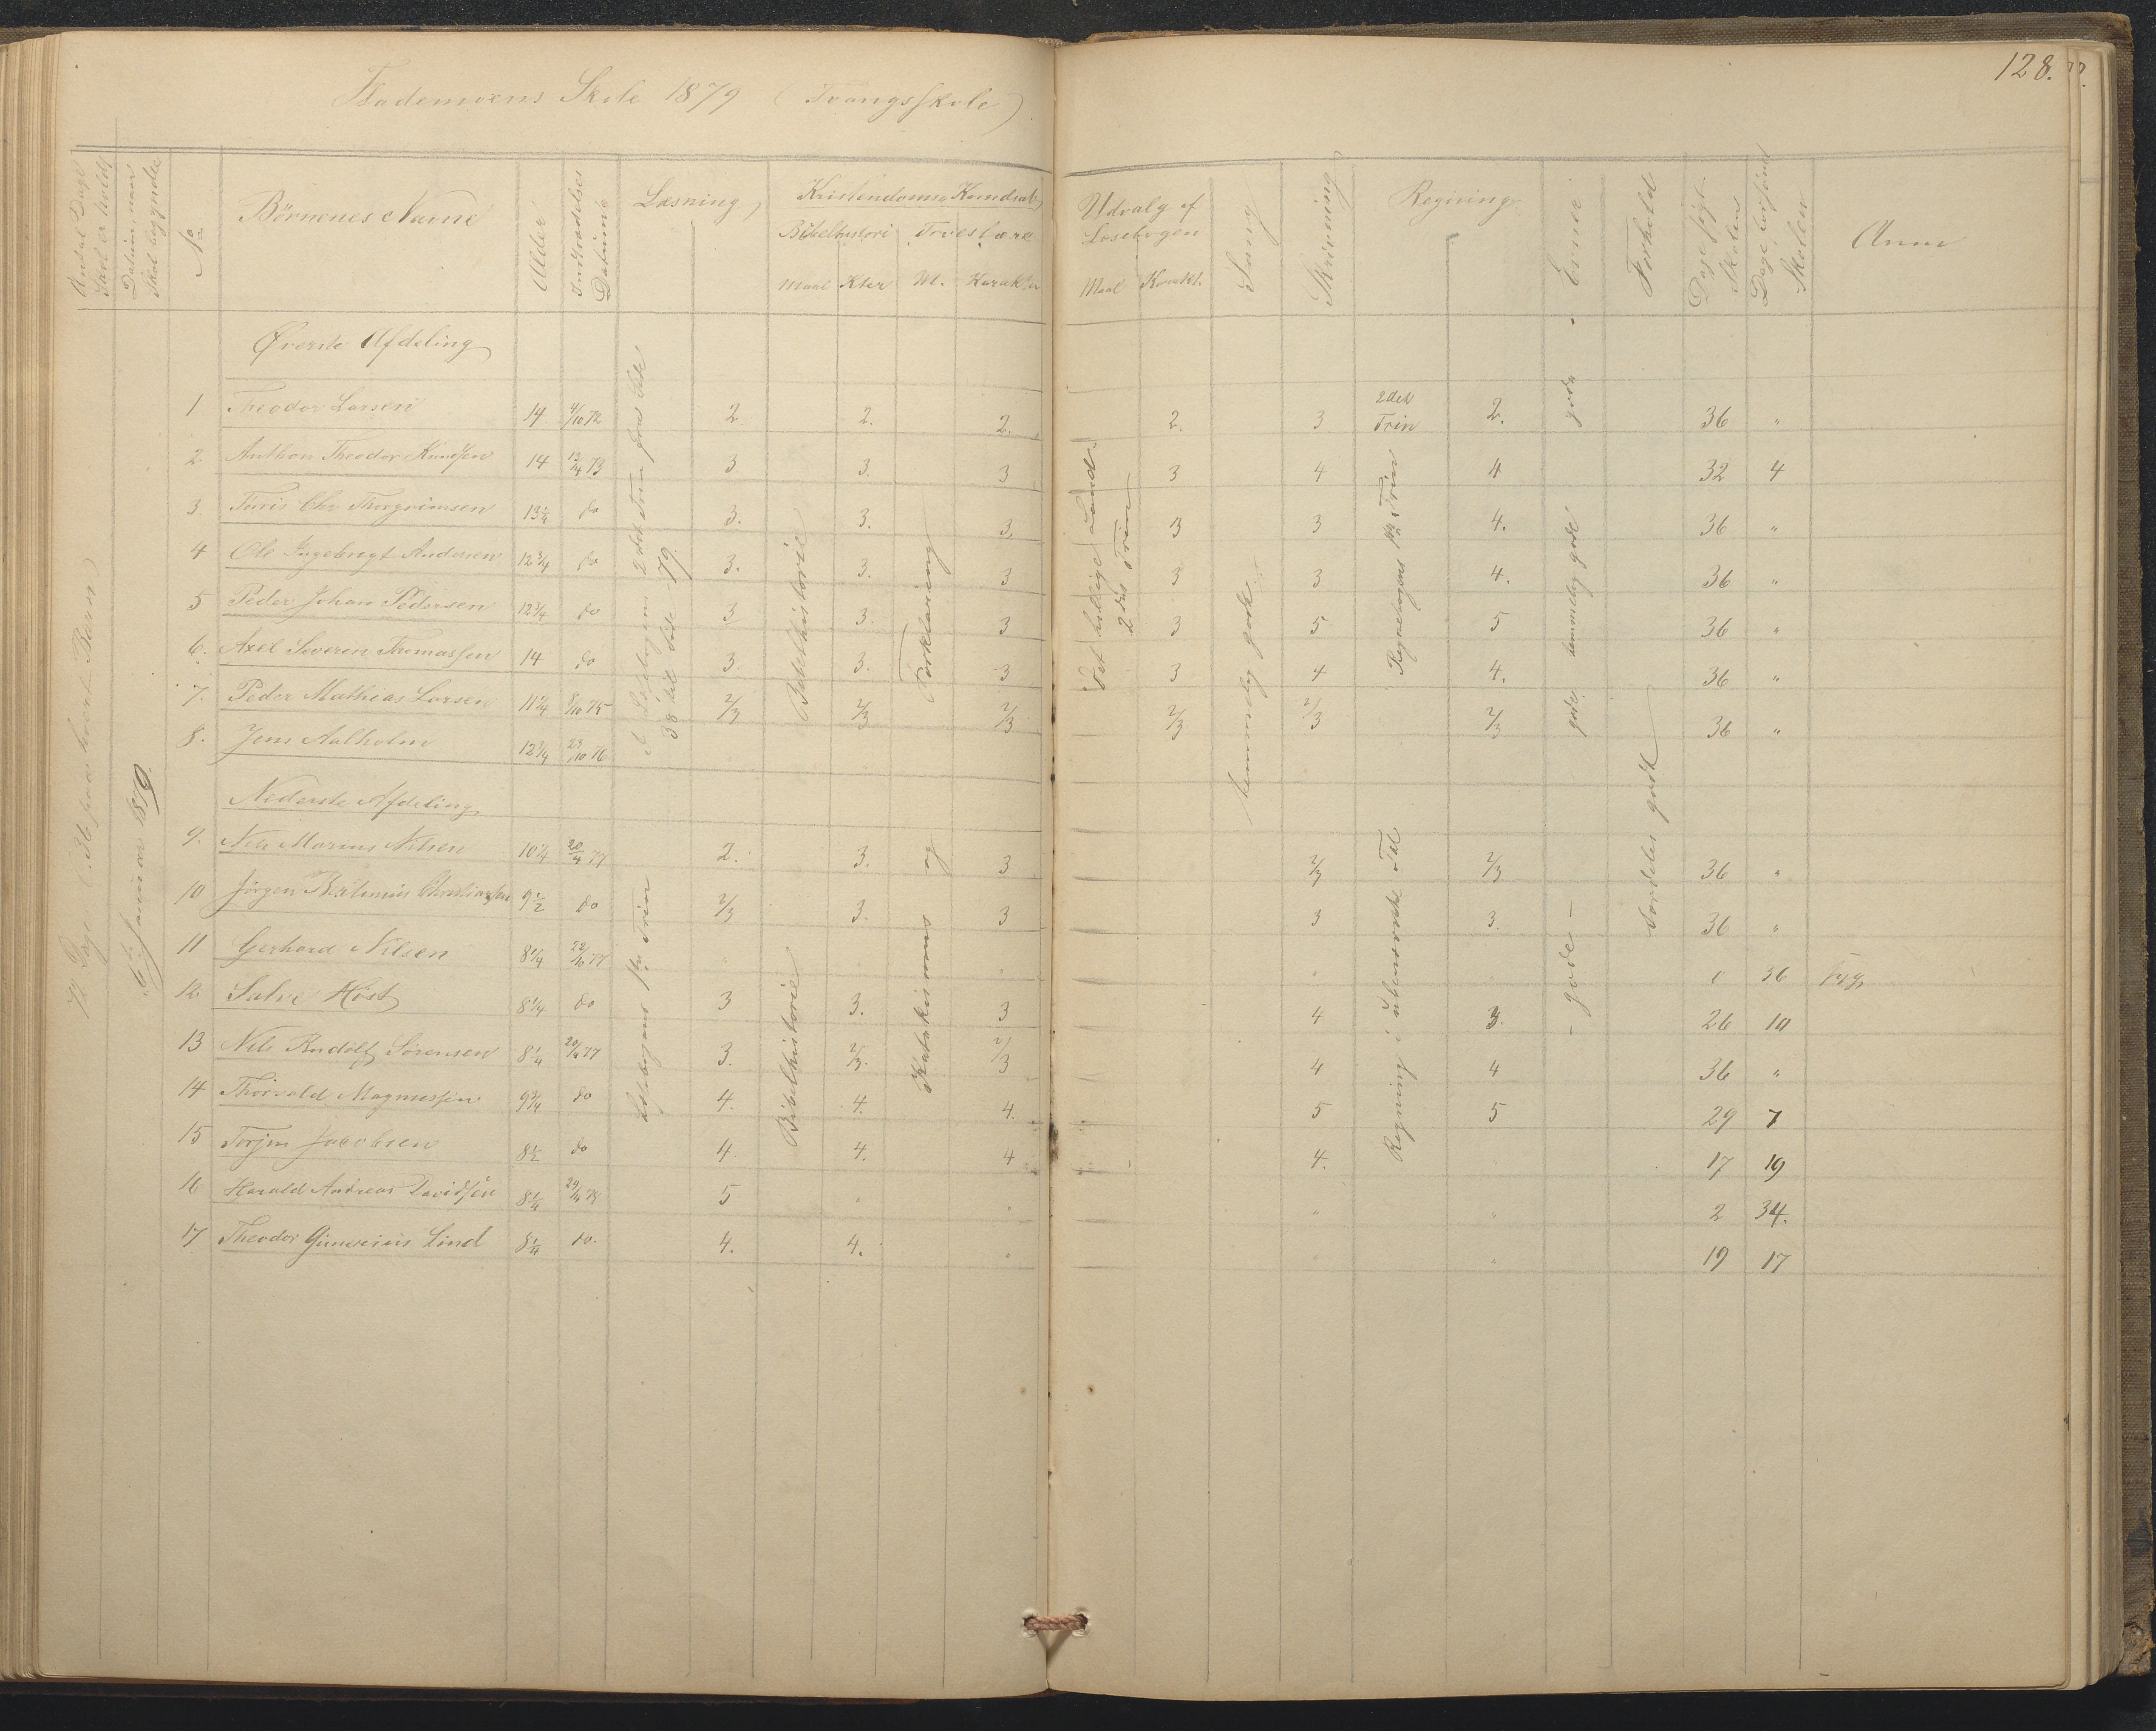 128.
Flademoens Skole 1879 (Tvangsskole)
Antal Dage Skol er holdt
Datum, naar Skol begyndte
No
Børnenes Navne
Alder
Indtrædelses Datum
Læsning
Kristendoms Kundskab
Bibelhistori Troeslære
Maal Kter Ml. Karakter
Udvalg af Læsebogen
Maal Karakt.
Sang
Skrivning
Regning
Evner
Forhold
Dage søgt Skolen
Dage forsømt Skolen
Anm
72 Dage (: 36 paa hvert Barn
6te Januar 1879.
Øverste Afdeling
I Læsebogen 2det Trin fra Side 38 til Side 79.
Bibelhistorie
Forklaring
Det hellige Land. 2det Trin
temmelig gode
Regnebogens 1ste Trin
gode
temmelig gode
gode
1 Theodor Larsen 14 4/10 72 2 2. 2. 2. 3 2det Trin 2. 36 "
2. Anthon Theodor Knudsen 14 13/4 73 3 3. 3 3 4 4 32 4
3. Tønis Chr Thorgrimsen 13 1/4 do 3. 3. 3. 3 3 4. 36 "
4 Ole Ingebrigt Andersen 12 3/4 do 3. 3. 3 3 3 4. 36 "
5 Peder Johan Pedersen 12 3/4 do 3 3. 3 3 5 5 36 "
6. Axel Severin Thomassen 14 do 3 3. 3 3 4 4. 36 "
7. Peder Mathias Larsen 11 1/4 8/10 75 2/3 2/3 2/3 2/3 2/3 2/3 36 "
8. Jens Aalholm 12 3/4 23/10 76
Nederste Afdeling
Læsebogens 1ste Trin
Bibelhistorie
og Katekismus
Regning i ubenævnte Tal
- gode -
særdeles godt
9. Nils Marius Nilsen 10 1/4 20/4 77 2. 3. 3 2/3 2/3 36 "
10 Jørgen Christiansen 9 1/2 do 2/3 3. 3 3 3. 36 "
11 Gerhard Nilsen 8 3/4 22/10 77 " " " " " " 36 syg
12. Salve Høst 8 1/4 do 3 3. 3 4 3. 26 10
13 Nils Rudolf Sørensen 8 1/4 20/4 77 3. 2/3. 2/3 4 4 36 "
14 Thorvald Magnussen 9 3/4 do 4. 4. 4. 5 5 29 7
15 Torjus Jacobsen 8 1/2 do 4. 4. 4 4. 17 19
16 Harald Andreas Davidsen 8 1/4 5 " " " " 2 34.
17 Theodor Gunerius Lind 8 1/4 do. 4. 4. " " " 19 17